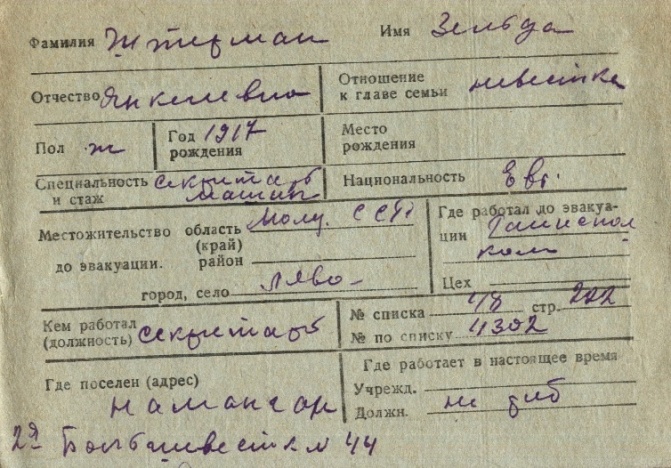 Фамилия Жтерман Имя Зельда
Отчество Янкелевна Отношение к главе семьи невестка
Пол ж Год рождения 1917 Место рождения
Специальность и стаж секретарь машин Национальность Евр.
Местожительство до эвакуации. область (край) Молд. ССР
район
город, село
Где работал до эвакуации
ком
Цех
Кем работал (должность) секретарь
№ списка 48 стр. 202
№ по списку 4302
Где поселен (адрес) Наманган
2я 44
Где работает в настоящее время
Учрежд.
Должн. не раб